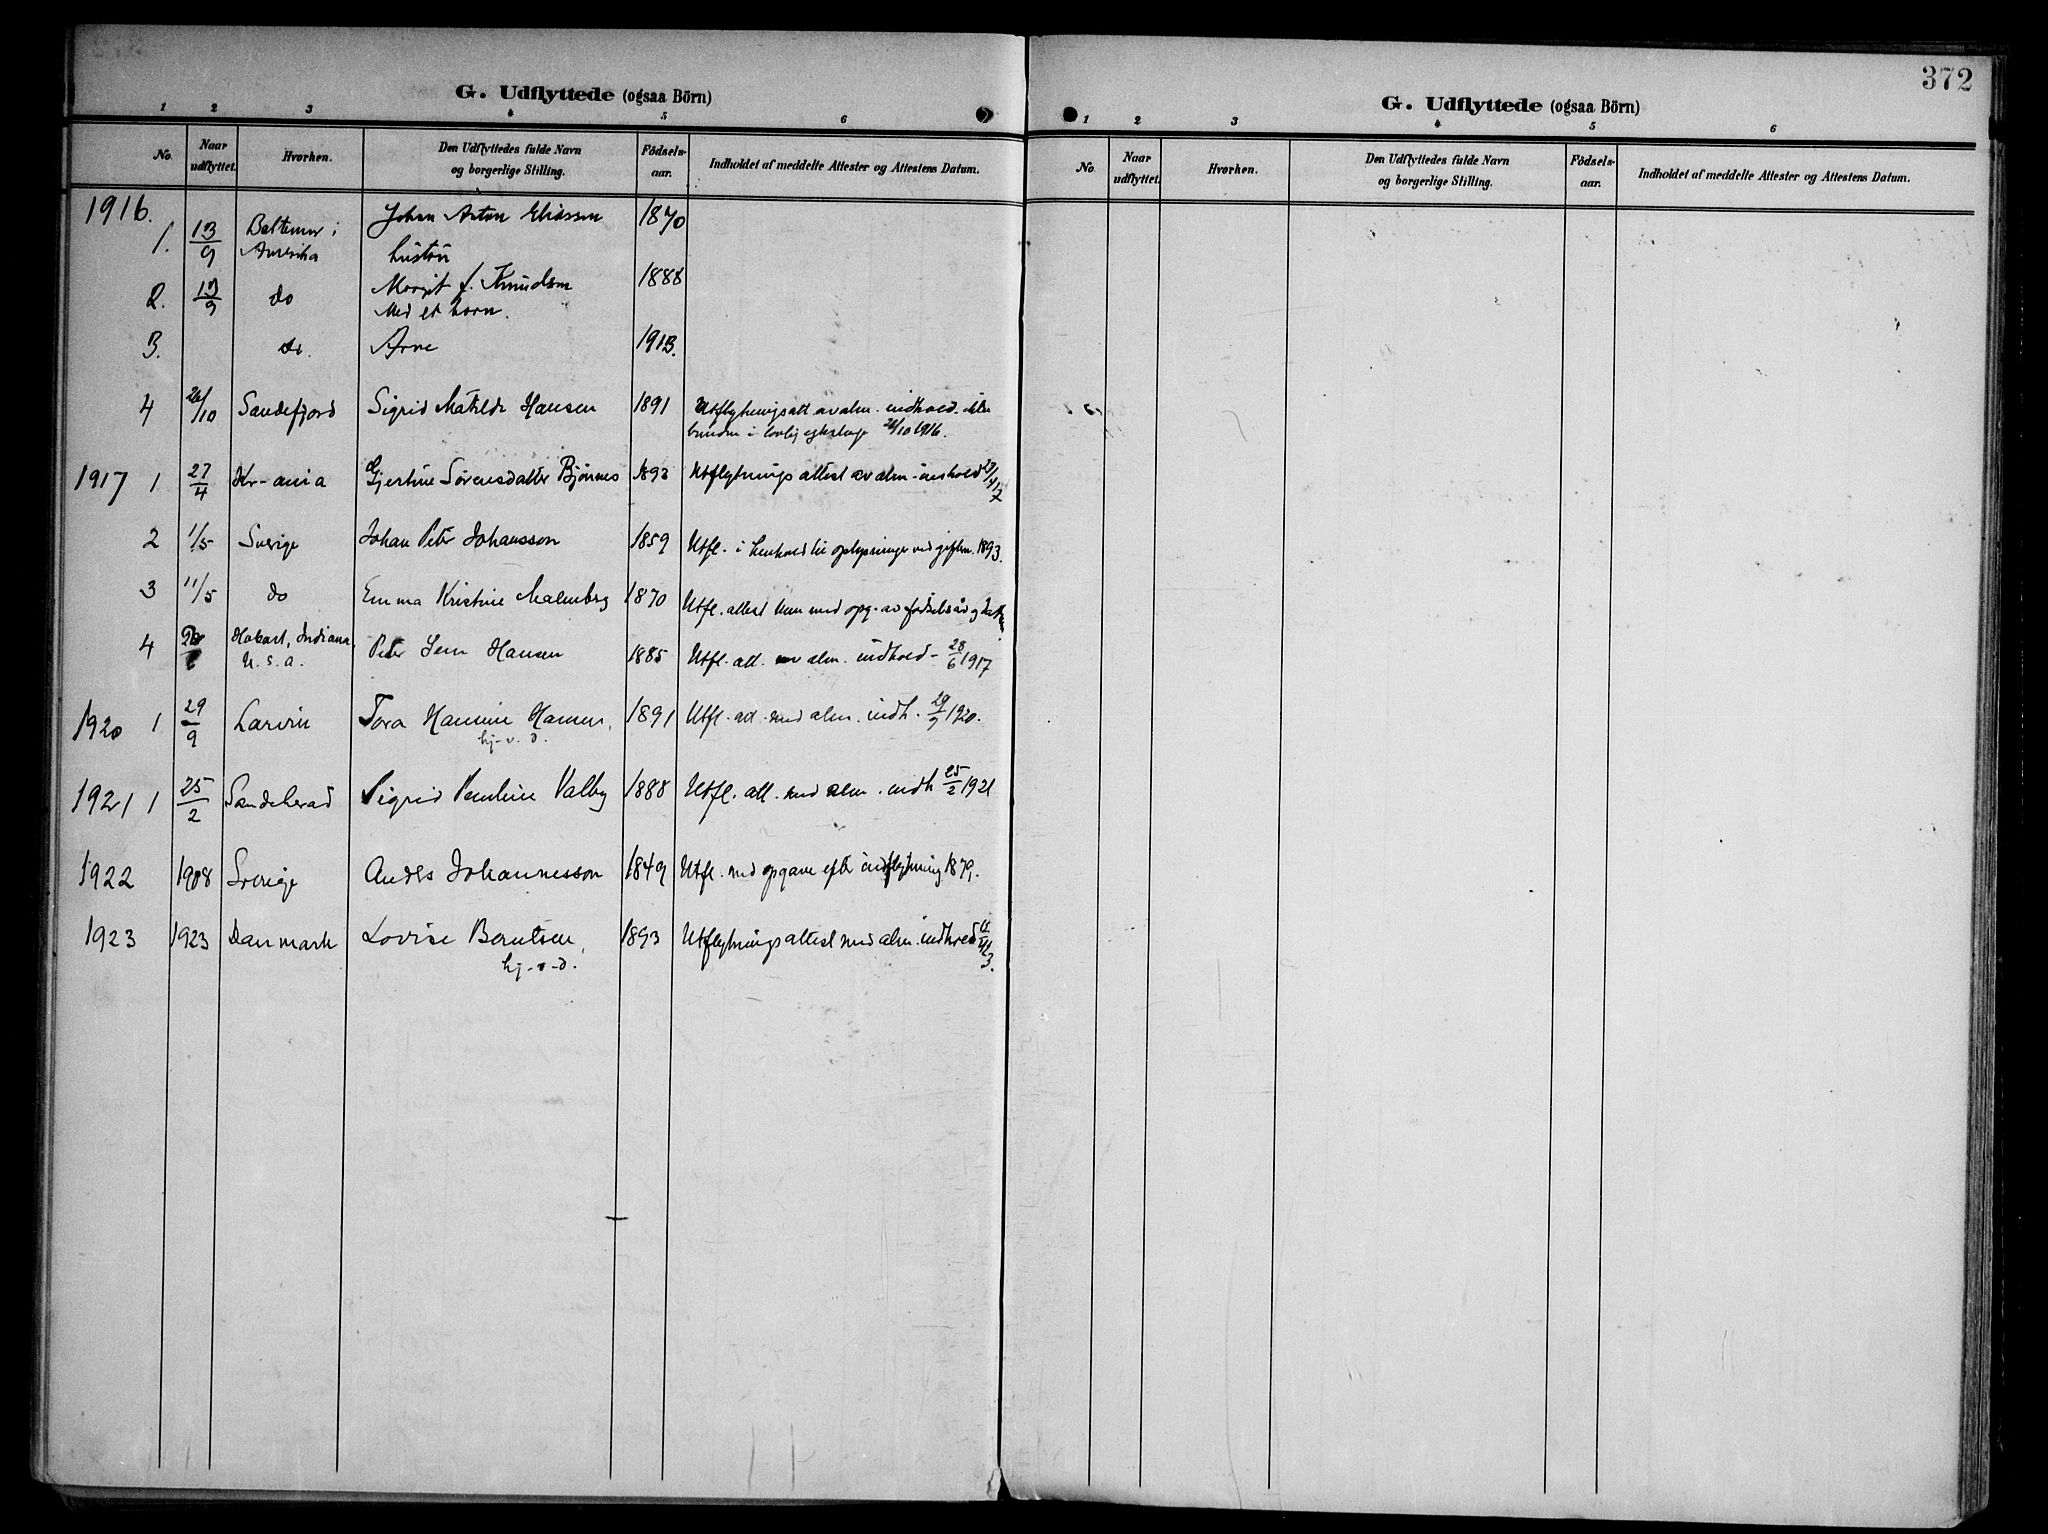 372
G. Udflyttede (ogsaa Börn)
1 2 3 4 5 6
No. Naar udflyttet. Hvorhen. Den Udflyttedes fulde Navn og borgerlige Stilling. Födsels-aar. Indholdet af meddelte Attester og Attestens Datum.
1916.
1. 13/9 Amerika Johan Anton Eliassen 1870
2. 13/9 do Margit f. Knudsen 1888
Med et barn.
3. do. Arne 1913.
4 26/10 Sandefjord Sigrid Matilde Hansen 1891 Utflytningsatt av alm. indhold. ikke
bunden i lovlig egteskap 26/10 1916.
1917 1 27/4 Kr-ania Gjertine Sørensdatter Bjørnes 1893 Utflytnings attest av alm. indhold 27/4 17
2 1/5 Sverige Johan Peter Johansson 1859 Utfl. i henhold til oplysninger ved giftem. 1893.
3 11/5 do Emma Kristine Malmberg 1870 Utfl. attest kun med opg. av fødselsår og
4 Hobart, Indiana,
U.S.a. Peter Sem Hansen 1885 Utfl. att. av alm. indhold - 28/6 1917
1920 1 29/9 Larvik Tora Hansen, 1891 Utfl. att. med alm. indh. 29/9 1920.
hj-v.d.
1921 1 25/2 Sandeherad Sigrid Pauline Valby 1888 Utfl. att. med alm. indh 25/2 1921
1922 1908 Sverige Anders Johannesson 1849 Utfl. med opgave efter indflytning 1879.
1923 1923 Danmark Lovise Berntsen, 1893 Utflytningsattest med alm. indhold
hj-v-d.
G. Udflyttede (ogsaa Börn)
1 2 3 4 5 6
No. Naar udflyttet. Hvorhen. Den Udflyttedes fulde Navn og borgerlige Stilling. Födsels-aar. Indholdet af meddelte Attester og Attestens Datum.